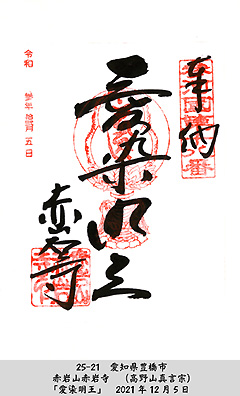 奉納
愛染明王
赤岩寺
令和 参年 拾弐月 五日
25-21 愛知県豊橋市
赤岩山赤岩寺 (高野山真言宗)
「愛染明王」 2021年12月5日